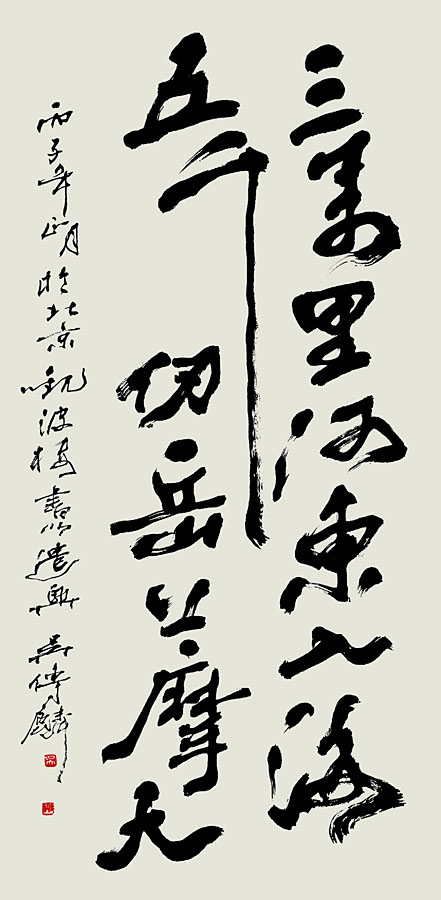 三萬里河東入海
五千仞岳上摩天
丙子年正月於北京波樓書以遣興 吳傳麟